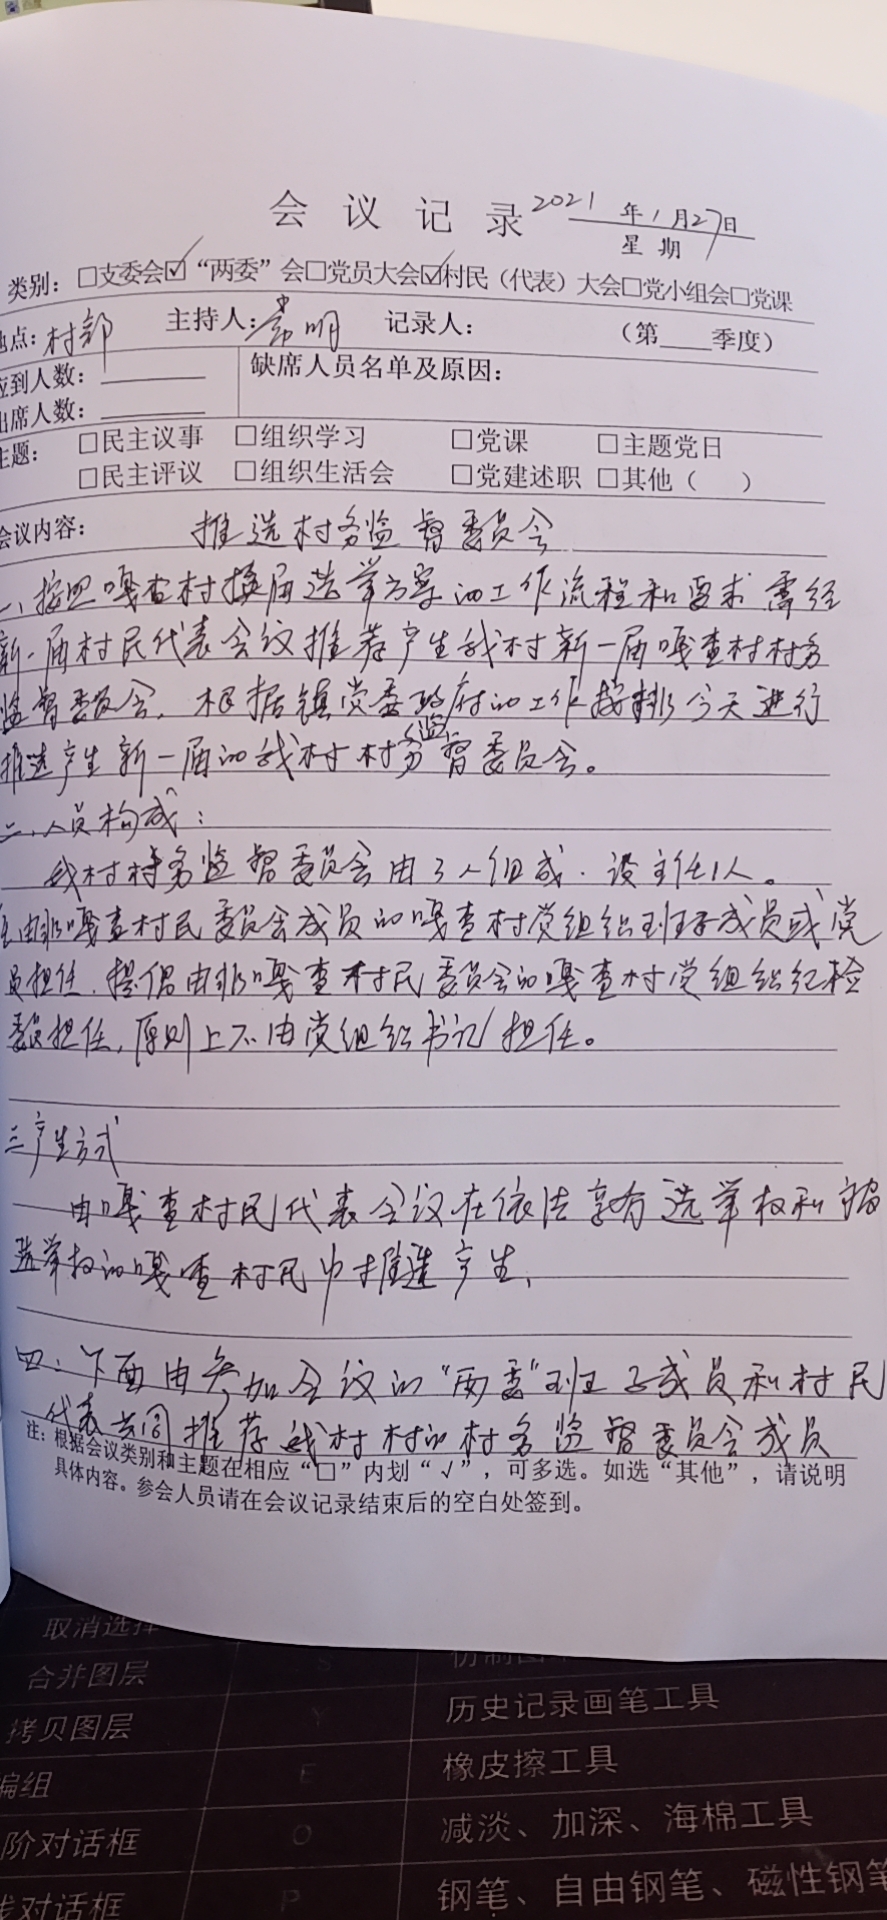 会 议 记 录 2021 年 1 月 27 日
星 期
类别：□支委会☑“两委”会□党员大会☑村民（代表）大会□党小组会□党课
地点：村部 主持人： 记录人： （第____季度）
应到人数：
出席人数：
缺席人员名单及原因：
主题： □民主议事 □组织学习 □党课 □主题党日
□民主评议 □组织生活会 □党建述职 □其他（ ）
会议内容： 推选村务监督委员会
一、按照嘎查村换届选举方案的工作流程和要求需经
新一届村民代表会议推荐产生我村新一届嘎查村村务
监督委员会，根据镇党委政府的工作按排今天进行
推选产生新一届的我村村务监督委员会。
二、人员构成：
我村村务监督委员会由3人组成．设主任1人。
由非嘎查村民委员会成员的嘎查村党组织班子成员或党
员担任．提倡由非嘎查村民委员会的嘎查村党组织纪检
委员担任，原则上不由党组织书记担任。
三产生方式
由嘎查村民代表会议在依法享有选举权和被
选举权的嘎查村民中推选产生、
四、下面由参加会议的“两委”班子成员和村民
代表共同推荐我村村的村务监督委员会成员
注：根据会议类别和主题在相应“□”内划“√”，可多选。如选“其他”，请说明
具体内容。参会人员请在会议记录结束后的空白处签到。
取消选择
合并图层 S
拷贝图层 Y 历史记录画笔工具
编组 E 橡皮擦工具
阶对话框 O 减淡、加深、海棉工具
线对话框 P 钢笔、自由钢笔、磁性钢笔